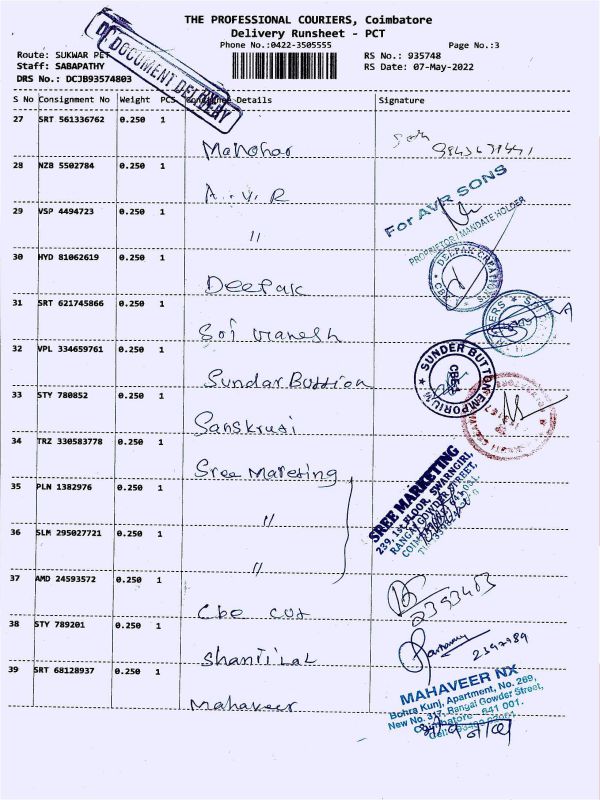 THE PROFESSIONAL COURIERS, Coimbatore
Delivery Runsheet - PCT
Phone No.:0422-3505555
Page No.:3
Route: SUKWAR PET
RS No.: 935748
Staff: SABAPATHY
RS Date: 07-May-2022
DRS No.: DCJB93574803
DOCUMENT DELIVERY
S No Consignment No Weight PCS Details Signature
27 SRT 561336762 0.250 1 Manohar
28 NZB 5502784 0.250 1 A.V.R
29 VSP 4494723 0.250 1 "
For AVR SONS
PROPRIETOR / MANDATE HOLDER
30 HYD 81062619 0.250 1 Deepak
DEEPAK CREATIONS
31 SRT 621745866 0.250 1 Sri Ganesh
32 VPL 334659761 0.250 1 Sundar Buttion
SUNDER BUTTON EMPORIUM
CBE-1
33 STY 780852 0.250 1 Sanskruti
34 TRZ 330583778 0.250 1 Sree Mareting
SREE MARKETING
239, 1st FLOOR, SWARNGIRI,
RANGAI GOWDER STREET,
35 PLN 1382976 0.250 1 "
36 SLM 295027721 0.250 1 "
37 AMD 24593572 0.250 1 Cbe cut
2393453
38 STY 789201 0.250 1 Shantilal
2397989
39 SRT 68128937 0.250 1 Mahaveer
MAHAVEER NX
Bohra Kunj, Apartment, No. 269,
New No. 317, Rangai Gowder Street,
Coimbatore - 641 001.